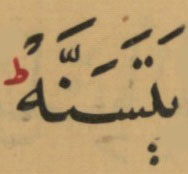 يَتَسَنَّهْ ؕ